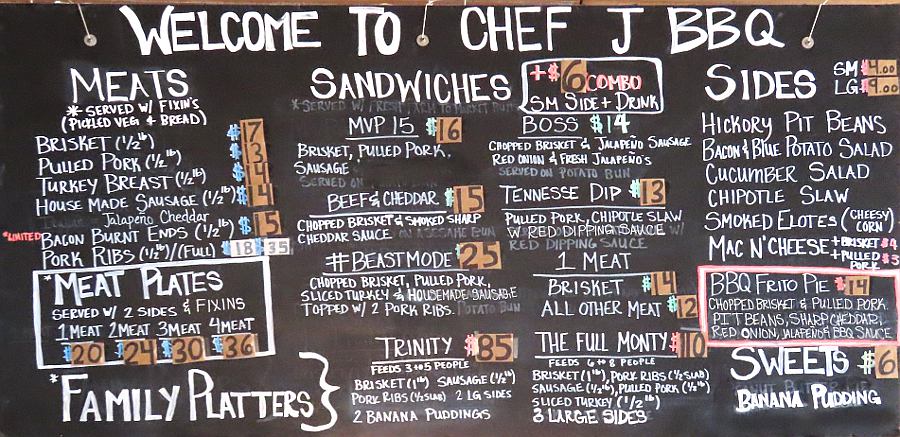 WELCOME TO CHEF J BBQ
MEATS
*SERVED W/ FIXIN'S
(PICKLED VEG & BREAD)
BRISKET (1/2 lb) $17
PULLED PORK (1/2 lb) $13
TURKEY BREAST (1/2 lb) $14
HOUSE MADE SAUSAGE (1/2 lb) $14
Jalapeño Cheddar
BACON BURNT ENDS (1/2 lb) $15
*LIMITED
PORK RIBS (1/2)/(FULL) $18 $35
*MEAT PLATES
SERVED W/ 2 SIDES & FIXINS
1 MEAT 2 MEAT 3 MEAT 4 MEAT
$20 $24 $30 $36
*FAMILY PLATTERS }
SANDWICHES
*SERVED W/ FRESH
+$6 COMBO
SM SIDE + DRINK
MVP 15 $16
BRISKET, PULLED PORK,
SAUSAGE
SERVED ON
BEEF & CHEDDAR $15
CHOPPED BRISKET & SMOKED SHARP
CHEDDAR SAUCE
#BEASTMODE $25
CHOPPED BRISKET, PULLED PORK,
SLICED TURKEY & HOUSEMADE SAUSAGE
TOPPED W/ 2 PORK RIBS. POTATO BUN
TRINITY $85
FEEDS 3 to 5 PEOPLE
BRISKET (1 lb) SAUSAGE (1/2 lb)
PORK RIBS (1/2 SLAB) 2 LG SIDES
2 BANANA PUDDINGS
BOSS $14
CHOPPED BRISKET & JALAPEÑO SAUSAGE
RED ONION & FRESH JALAPEÑO'S
SERVED ON POTATO BUN
TENNESSE DIP $13
PULLED PORK, CHIPOTLE SLAW
W/ RED DIPPING SAUCE
RED DIPPING SAUCE
1 MEAT
BRISKET $14
ALL OTHER MEAT $12
THE FULL MONTY $110
FEEDS 6 to 8 PEOPLE
BRISKET (1 lb), PORK RIBS (1/2 SLAB)
SAUSAGE (1/2 lb), PULLED PORK (1/2 lb)
SLICED TURKEY (1/2 lb)
3 LARGE SIDES
SIDES
SM $4.00
LG $9.00
HICKORY PIT BEANS
BACON & BLUE POTATO SALAD
CUCUMBER SALAD
CHIPOTLE SLAW
SMOKED ELOTES (CHEESY CORN)
MAC N' CHEESE + BRISKET $4
+ PULLED PORK $3
BBQ FRITO PIE $14
CHOPPED BRISKET & PULLED PORK
PIT BEANS, SHARP CHEDDAR,
RED ONION, JALAPEÑO & BBQ SAUCE
SWEETS $6
BANANA PUDDING